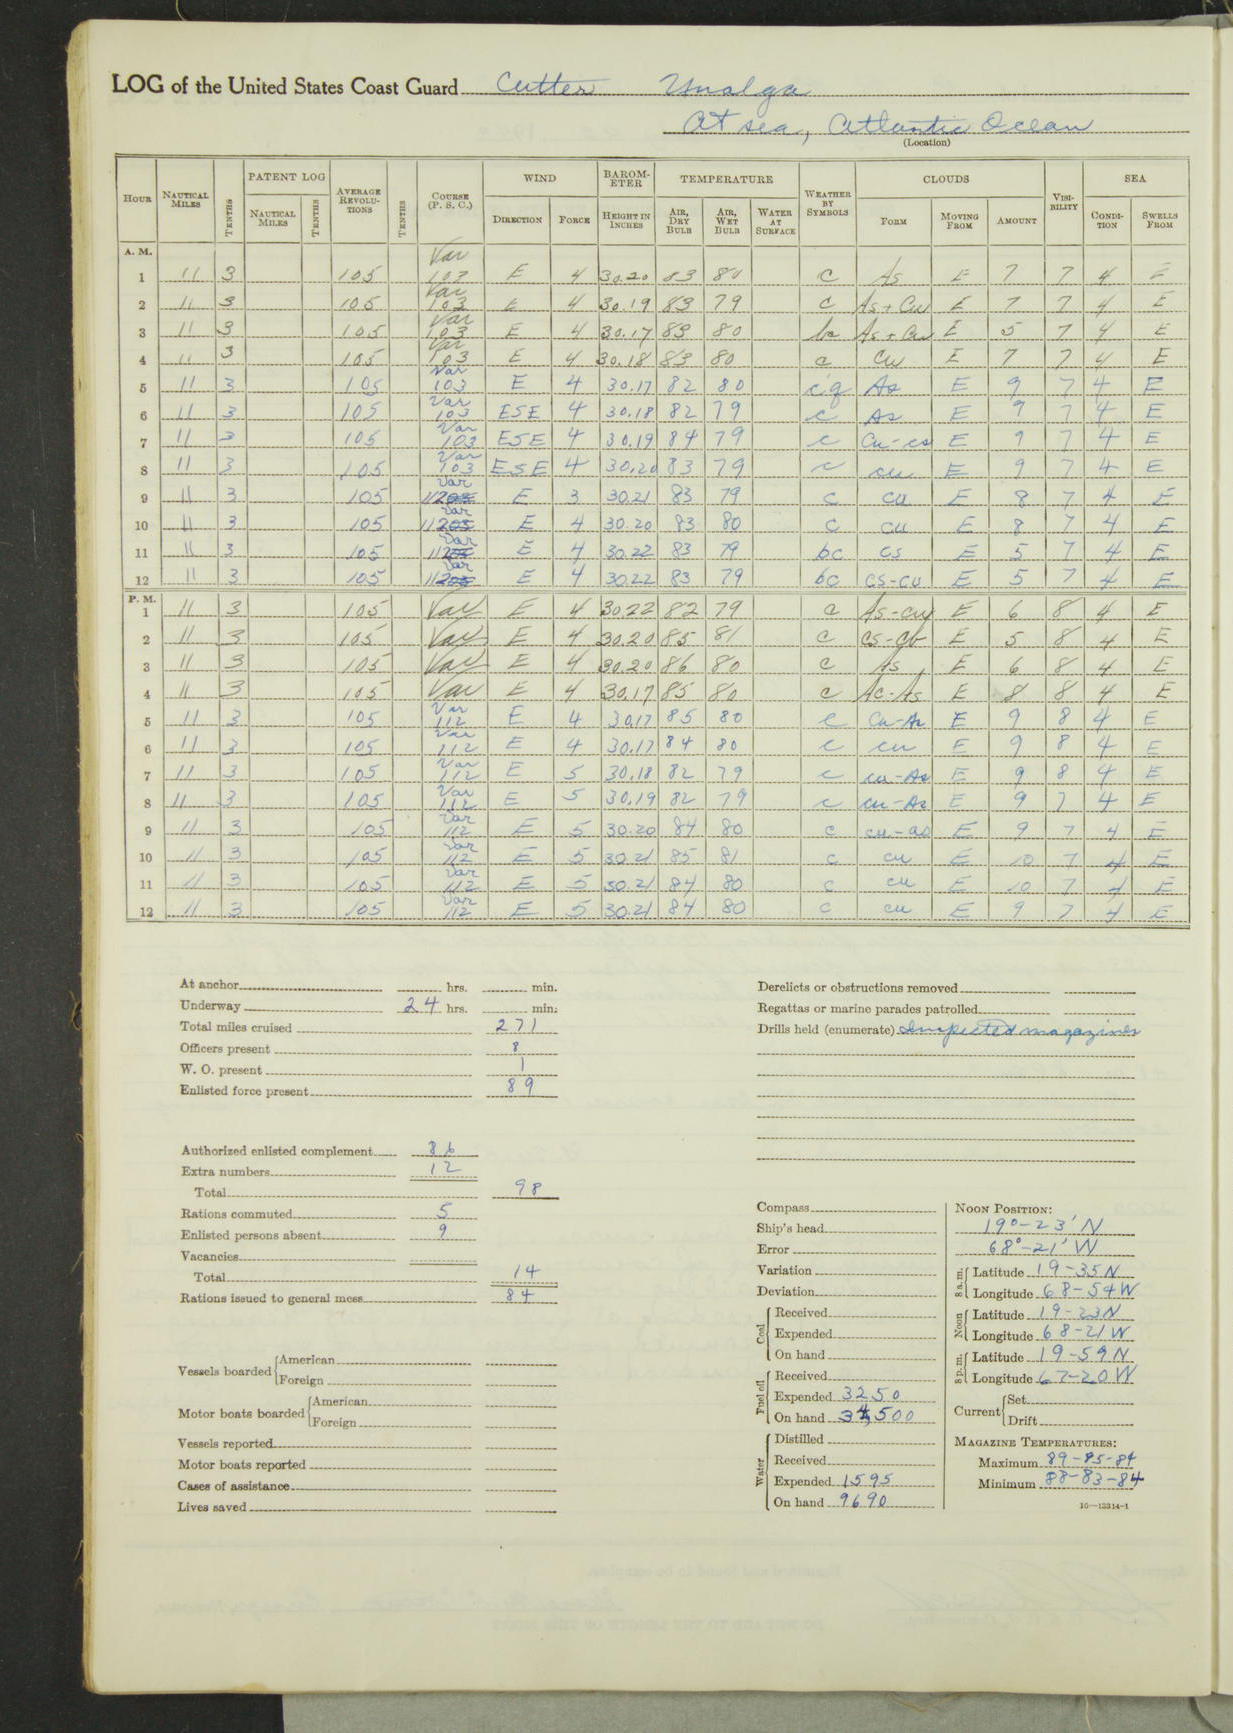 LOG of the United States Coast Guard Cutter Unalga
At sea, Atlantic Ocean
(Location)
HOUR NAUTICAL MILES TENTHS PATENT LOG NAUTICAL MILES TENTHS AVERAGE REVOLUTIONS TENTHS COURSE (P. S. C.) WIND DIRECTION FORCE BAROMETER HEIGHT IN INCHES TEMPERATURE AIR, DRY BULB AIR, WET BULB WATER AT SURFACE WEATHER BY SYMBOLS CLOUDS FORM MOVING FROM AMOUNT VISIBILITY SEA CONDITION SWELLS FROM
A. M.
1 11 3 105 Var 103 E 4 30.20 83 80 c As E 7 7 4 E
2 11 3 105 Var 103 E 4 30.19 83 79 c As+Cu E 7 7 4 E
3 11 3 105 Var 103 E 4 30.17 83 80 bc As+Cu E 5 7 4 E
4 11 3 105 Var 103 E 4 30.18 83 80 c Cu E 7 7 4 E
5 11 3 105 Var 103 E 4 30.17 82 80 c,q As E 9 7 4 E
6 11 3 105 Var 103 ESE 4 30.18 82 79 c As E 9 7 4 E
7 11 3 105 Var 103 ESE 4 30.19 84 79 c Cu-cs E 9 7 4 E
8 11 3 105 Var 103 ESE 4 30.20 83 79 c cu E 9 7 4 E
9 11 3 105 Var 112 E 3 30.21 83 79 c cu E 8 7 4 E
10 11 3 105 Var 112 E 4 30.20 83 80 c cu E 8 7 4 E
11 11 3 105 Var 112 E 4 30.22 83 79 bc cs E 5 7 4 E
12 11 3 105 Var 112 E 4 30.22 83 79 bc cs-cu E 5 7 4 E
P. M.
1 11 3 105 Var E 4 30.22 82 79 c As-cu E 6 8 4 E
2 11 3 105 Var E 4 30.20 85 81 c E 5 8 4 E
3 11 3 105 Var E 4 30.20 86 80 c As E 6 8 4 E
4 11 3 105 Var E 4 30.17 85 80 c Ac-As E 8 8 4 E
5 11 3 105 Var 112 E 4 30.17 85 80 c Cu-As E 9 8 4 E
6 11 3 105 Var 112 E 4 30.17 84 80 c cu E 9 8 4 E
7 11 3 105 Var 112 E 5 30.18 82 79 c cu-As E 9 8 4 E
8 11 3 105 Var 112 E 5 30.19 82 79 c cu-As E 9 7 4 E
9 11 3 105 Var 112 E 5 30.20 84 80 c cu-as E 9 7 4 E
10 11 3 105 Var 112 E 5 30.21 85 81 c cu E 10 7 4 E
11 11 3 105 Var 112 E 5 30.21 84 80 c cu E 10 7 4 E
12 11 3 105 Var 112 E 5 30.21 84 80 c cu E 9 7 4 E
At anchor hrs. min.
Underway 24 hrs. min.
Total miles cruised 271
Officers present 8
W. O. present 1
Enlisted force present 89
Authorized enlisted complement 86
Extra numbers 12
Total 98
Rations commuted 5
Enlisted persons absent 9
Vacancies
Total 14
Rations issued to general mess 84
Vessels boarded American
Foreign
Motor boats boarded American
Foreign
Vessels reported
Motor boats reported
Cases of assistance
Lives saved
Derelicts or obstructions removed
Regattas or marine parades patrolled
Drills held (enumerate) Inspected magazines
Compass
Ship's head
Error
Variation
Deviation
Coal Received
Expended
On hand
Fuel oil Received
Expended 3250
On hand 34,500
Water Distilled
Received
Expended 1595
On hand 9690
NOON POSITION:
19°-23' N
68°-21' W
8 a. m. Latitude 19-35 N
Longitude 68-54 W
Noon Latitude 19-23 N
Longitude 68-21 W
8 p. m. Latitude 19-59 N
Longitude 67-20 W
Current Set
Drift
MAGAZINE TEMPERATURES:
Maximum 89-85-84
Minimum 88-83-84
16-13314-1